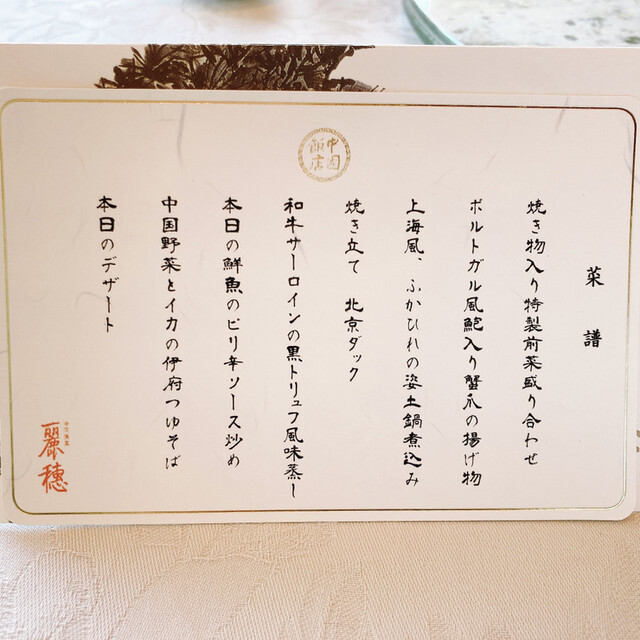 中国
飯店
菜譜
焼き物入り特製前菜盛り合わせ
ポルトガル風鮑入り蟹爪の揚げ物
上海風、ふかひれの姿土鍋煮込み
焼き立て 北京ダック
和牛サーロインの黒トリュフ風味蒸し
本日の鮮魚のピリ辛ソース炒め
中国野菜とイカの伊府つゆそば
本日のデザート
麗穂